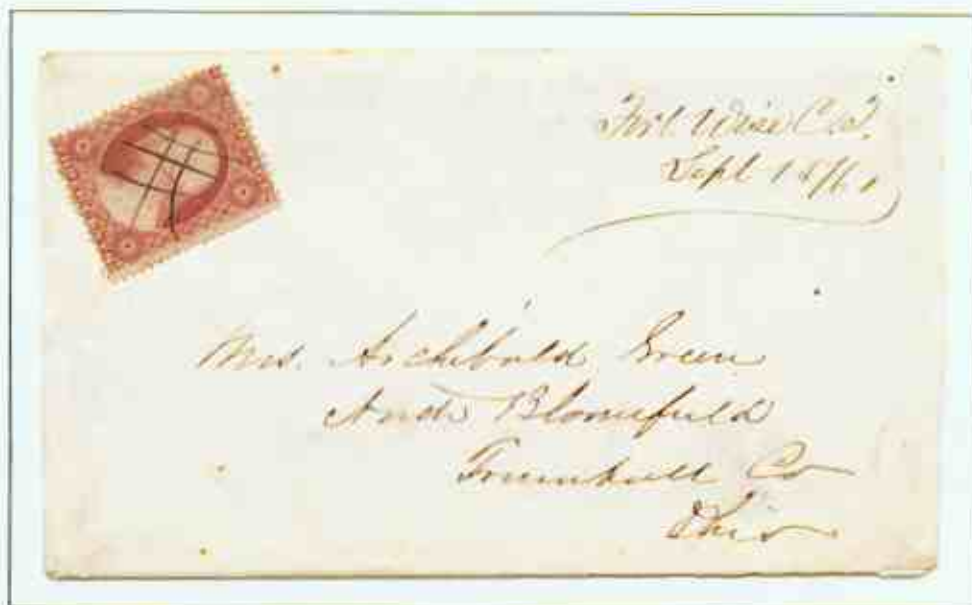 Fort Wise C.T.
Sept 18/61
Mrs. Archibald Green
North Bloomfield
Trumbull Co
Ohio